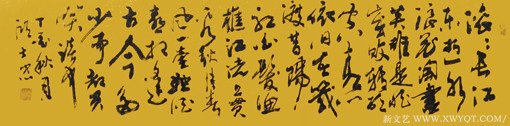 滚滚长江
东逝水
浪花淘尽
英雄是非
成败转头
空青山
依旧在几
度夕阳
红白发渔
樵江渚上惯
看秋月春
风一壶浊酒
喜相逢
古今多
少事都付
笑谈中
秋月
新文艺 WWW.XWYQT.COM